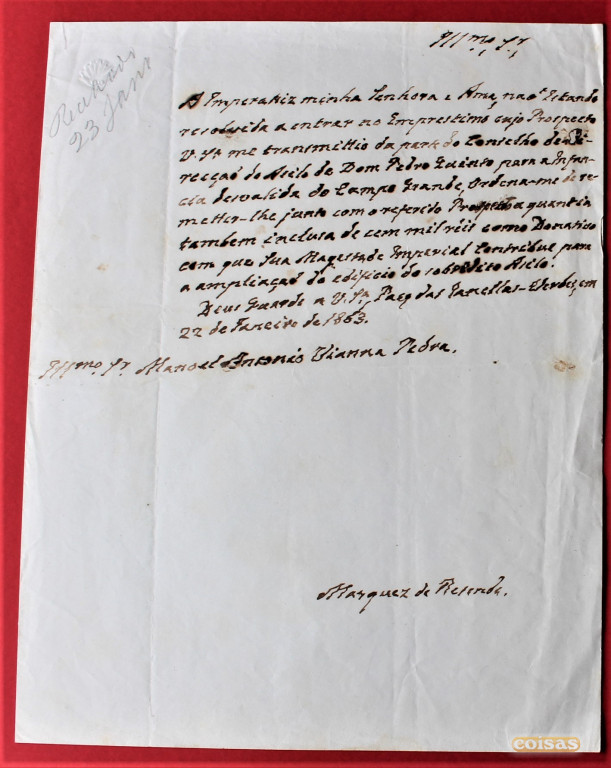 Illmo. Sr.
Recebida
23 Janr
A Imperatriz minha Senhora e Ama, naõ Estando
resolvida a entrar no Emprestimo cujo Prospecto
V. Sa. me transmittio da parte do Conselho de Di-
recçaõ do Asilo de Dom Pedro Quinto para a Infan-
cia desvalida do Campo Grande, Ordena-me de re-
metter-lhe junto com o referido Prospecto a quantia
tambem inclusa de cem mil réis como Donativo
com que Sua Magestade Imperial Contribue para
a ampliaçaõ do edificio do sobredito Asilo.
Deus Guarde a V. Sa. Paço das Janellas-Verdes, em
22 de Janeiro de 1863.
Illmo. Sr. Manoel Antonio Vianna Pedra.
Marquez de Resende.
coisas